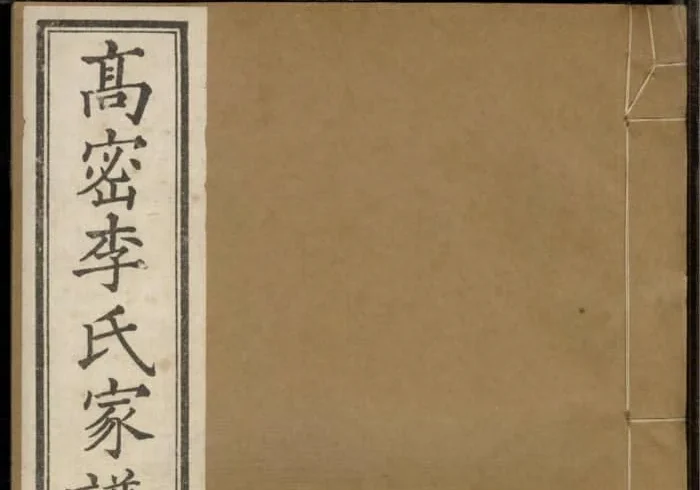 髙密李氏家